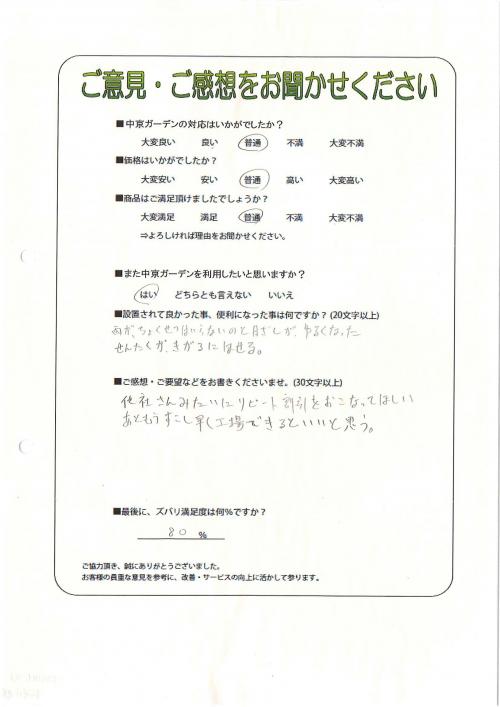 ご意見・ご感想をお聞かせください
■中京ガーデンの対応はいかがでしたか？
大変良い 良い 普通 不満 大変不満
■価格はいかがでしたか？
大変安い 安い 普通 高い 大変高い
■商品はご満足頂けましたでしょうか？
大変満足 満足 普通 不満 大変不満
⇒よろしければ理由をお聞かせください。
■また中京ガーデンを利用したいと思いますか？
はい どちらとも言えない いいえ
■設置されて良かった事、便利になった事は何ですか？(20文字以上)
雨が、ちょくせつはいらないのと日ざしが、ゆるくなった
せんたくが、きがるにほせる。
■ご感想・ご要望などをお書きくださいませ。(30文字以上)
他社さんみたいにリピート割引をおこなってほしい
あともうすこし早く工場できるといいと思う。
■最後に、ズバリ満足度は何％ですか？
80 ％
ご協力頂き、誠にありがとうございました。
お客様の貴重な意見を参考に、改善・サービスの向上に活かして参ります。